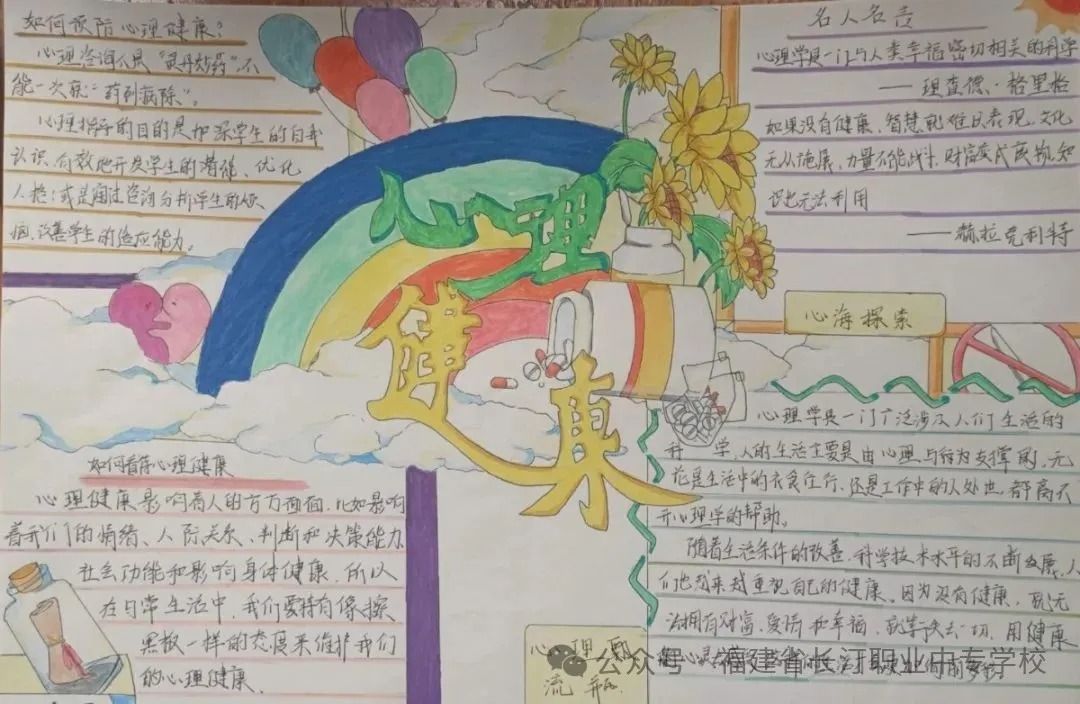 如何预防心理健康？
心理咨询不是“灵丹妙药”，不
能一次就“药到病除”。
心理指导的目的是加深学生的自我
认识，有效地开发学生的潜能、优化
人格；或是通过咨询分析学生的烦
恼，改善学生的适应能力。
名人名言
心理学是一门与人类幸福密切相关的科学
——理查德·格里格
如果没有健康，智慧就难以表现，文化
无从施展，力量不能战斗，财富变成废物，知
识也无法利用
——赫拉克利特
心理
健康
心海探索
如何看待心理健康
心理健康影响着人的方方面面，比如影响
着我们的情绪、人际关系、判断和决策能力
社会功能和影响身体健康，所以
在日常生活中，我们要持有像擦
黑板一样的态度来维护我们
的心理健康。
心理学是一门广泛涉及人们生活的
科学，人的生活主要是由心理与行为支撑的，无
论是生活中的衣食住行，还是工作中的人处世，都离不
开心理学的帮助。
随着生活条件的改善，科学技术水平的不断发展，人
们也越来越重视自己的健康。因为没有健康，就无
法拥有财富，爱情和幸福，就等失去一切，用健康
心理
流瓶
公众号 福建省长汀职业中专学校